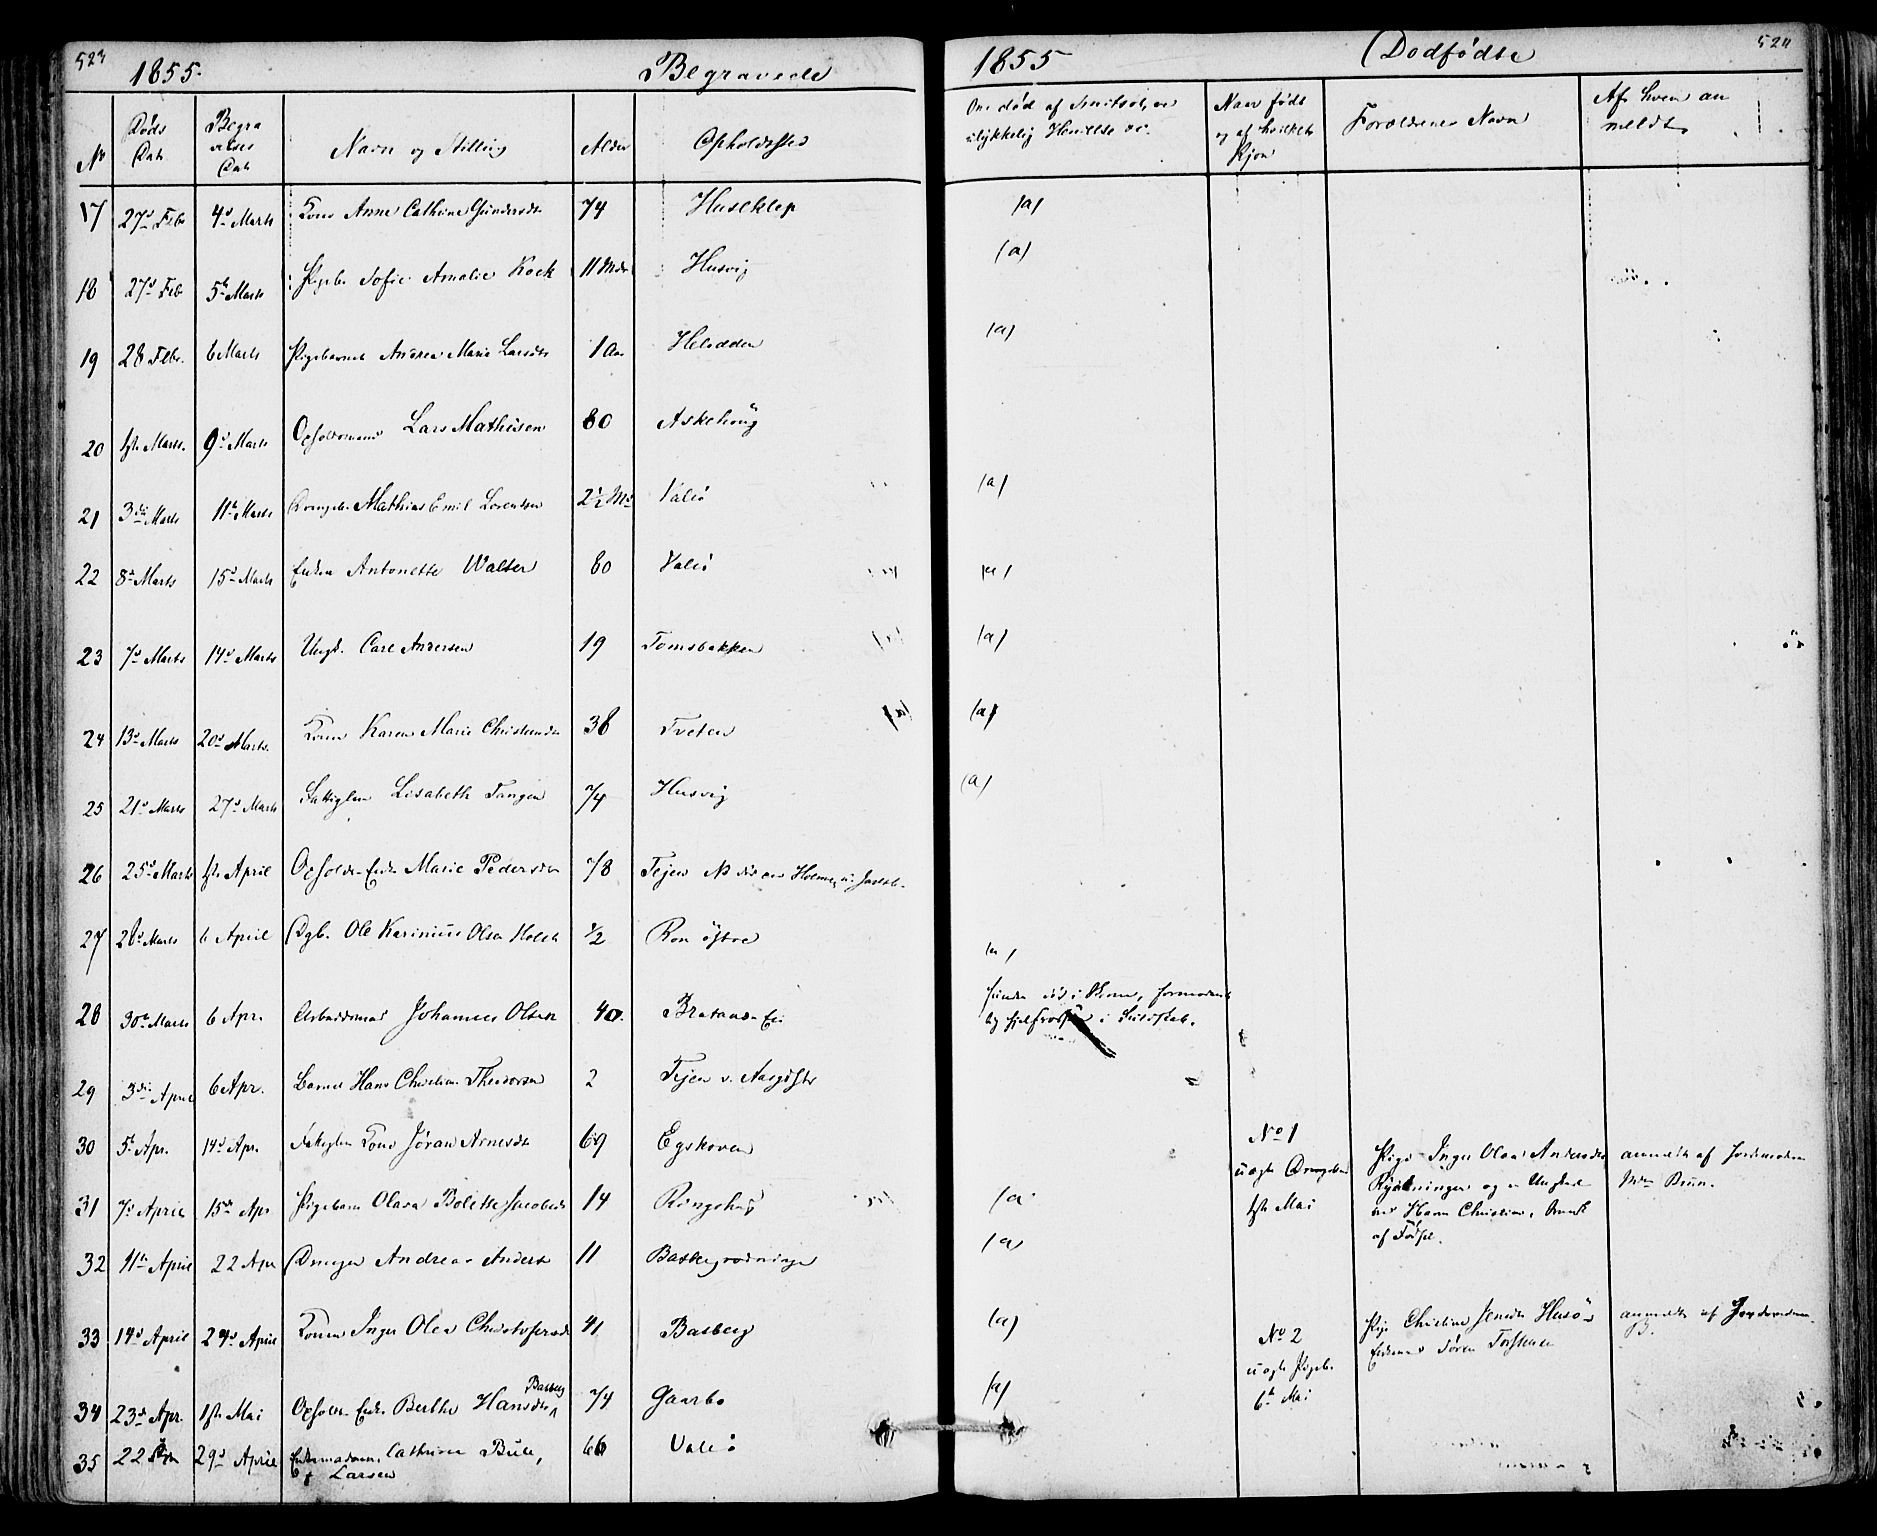 523 1855. Begravede
No Døds Dat. Begravelses Dat. Navn og Stilling Alder Opholdssted
17 27d Febr 4d Marts Kone Anne Cathrine Gundersdtr 74 Huseklep
18 27d Feb 5t Marts Pigeb. Sofie Amalie Kock 11 Mdr Husvig
19 28 Febr. 6 Marts Pigebarnet Andrea Marie Larsdtr 1 Aar
20 1ste Marts. 9d Marts Lars Mathisen 80 Askehoug
21 3die Marts 11te Marts Drengeb. Mathias Emil Lorentsen 2½ Md Valø
22 8de Marts 15d Marts Enken Antonette Walter 60 Valø
23 7d Marts 14d Marts Ungk. Carl Andersen 19 Tomsbakken
24 13d Marts 20d Marts. Kone Karen Marie Christensdtr 38 Tveten
25 21d Marts 27d Marts Fattiglem Lisabeth Tangen 74 Husvig
26 25d Marts 1ste April Opholds-Enke Marie Pedersdtr 78 Tejen
27 28d Marts 6 April Dgb. Ole Karinius Olsen Holch ½ Ron østre
28 30te Marts 6 Apr. Arbeidsmand Johannes Olsen 40. Bratans-Ei
29 3die April 6 Apr. Barnet Hans Christian Theodorsen 2 Tejen v. Aasgdstr
30 5t Apr. 14d Apr. Fattiglem Kone Jøran Arnesdtr 69 Egskoven
31 7d April 15de Apr Pigebarn Olava Bolette Jacobsdtr 14 Ringshug
32 11te April 22 Apr Drengen Andreas Anders. 11 Baskegrødninge
33 14d April 24d April Konen Inger Olea Christofersdtr 41 Basberg
Basberg
34 23de Apr. 1ste Mai Opholds-Enke Berthe Hansdtr 74 Gaarbo
35 22 Apr 29d April Enkemadam. Cathrine Bull, 66 Valø
Larsen
1855 Dødfødte 524
Om død af Smitsot, en ulykkelig Hændelse &c. Naar født og af hvilket Kjøn Forældrenes Navn Af hvem anmeldt
(a)
(a)
(a)
(a)
(a)
(a)
(a)
(a)
(a)
funden død i Skoven, formodentlig ihjelfrossen i Fuldskab.
(a
(a)
(a)
(a)
No 1
uægte Drengebarn
1ste Mai
Pige Inger Olea Andersdtr
og Ungkarl
Hans Christian,
af Fødsel.
anmeldt af Jordemoderen
Mm Bruun.
No 2
uægte Pigeb.
6te Mai
Pige Christine Jensdtr Husø
Enkemand Søren Torstensen
anmeldt af Jordemoderen